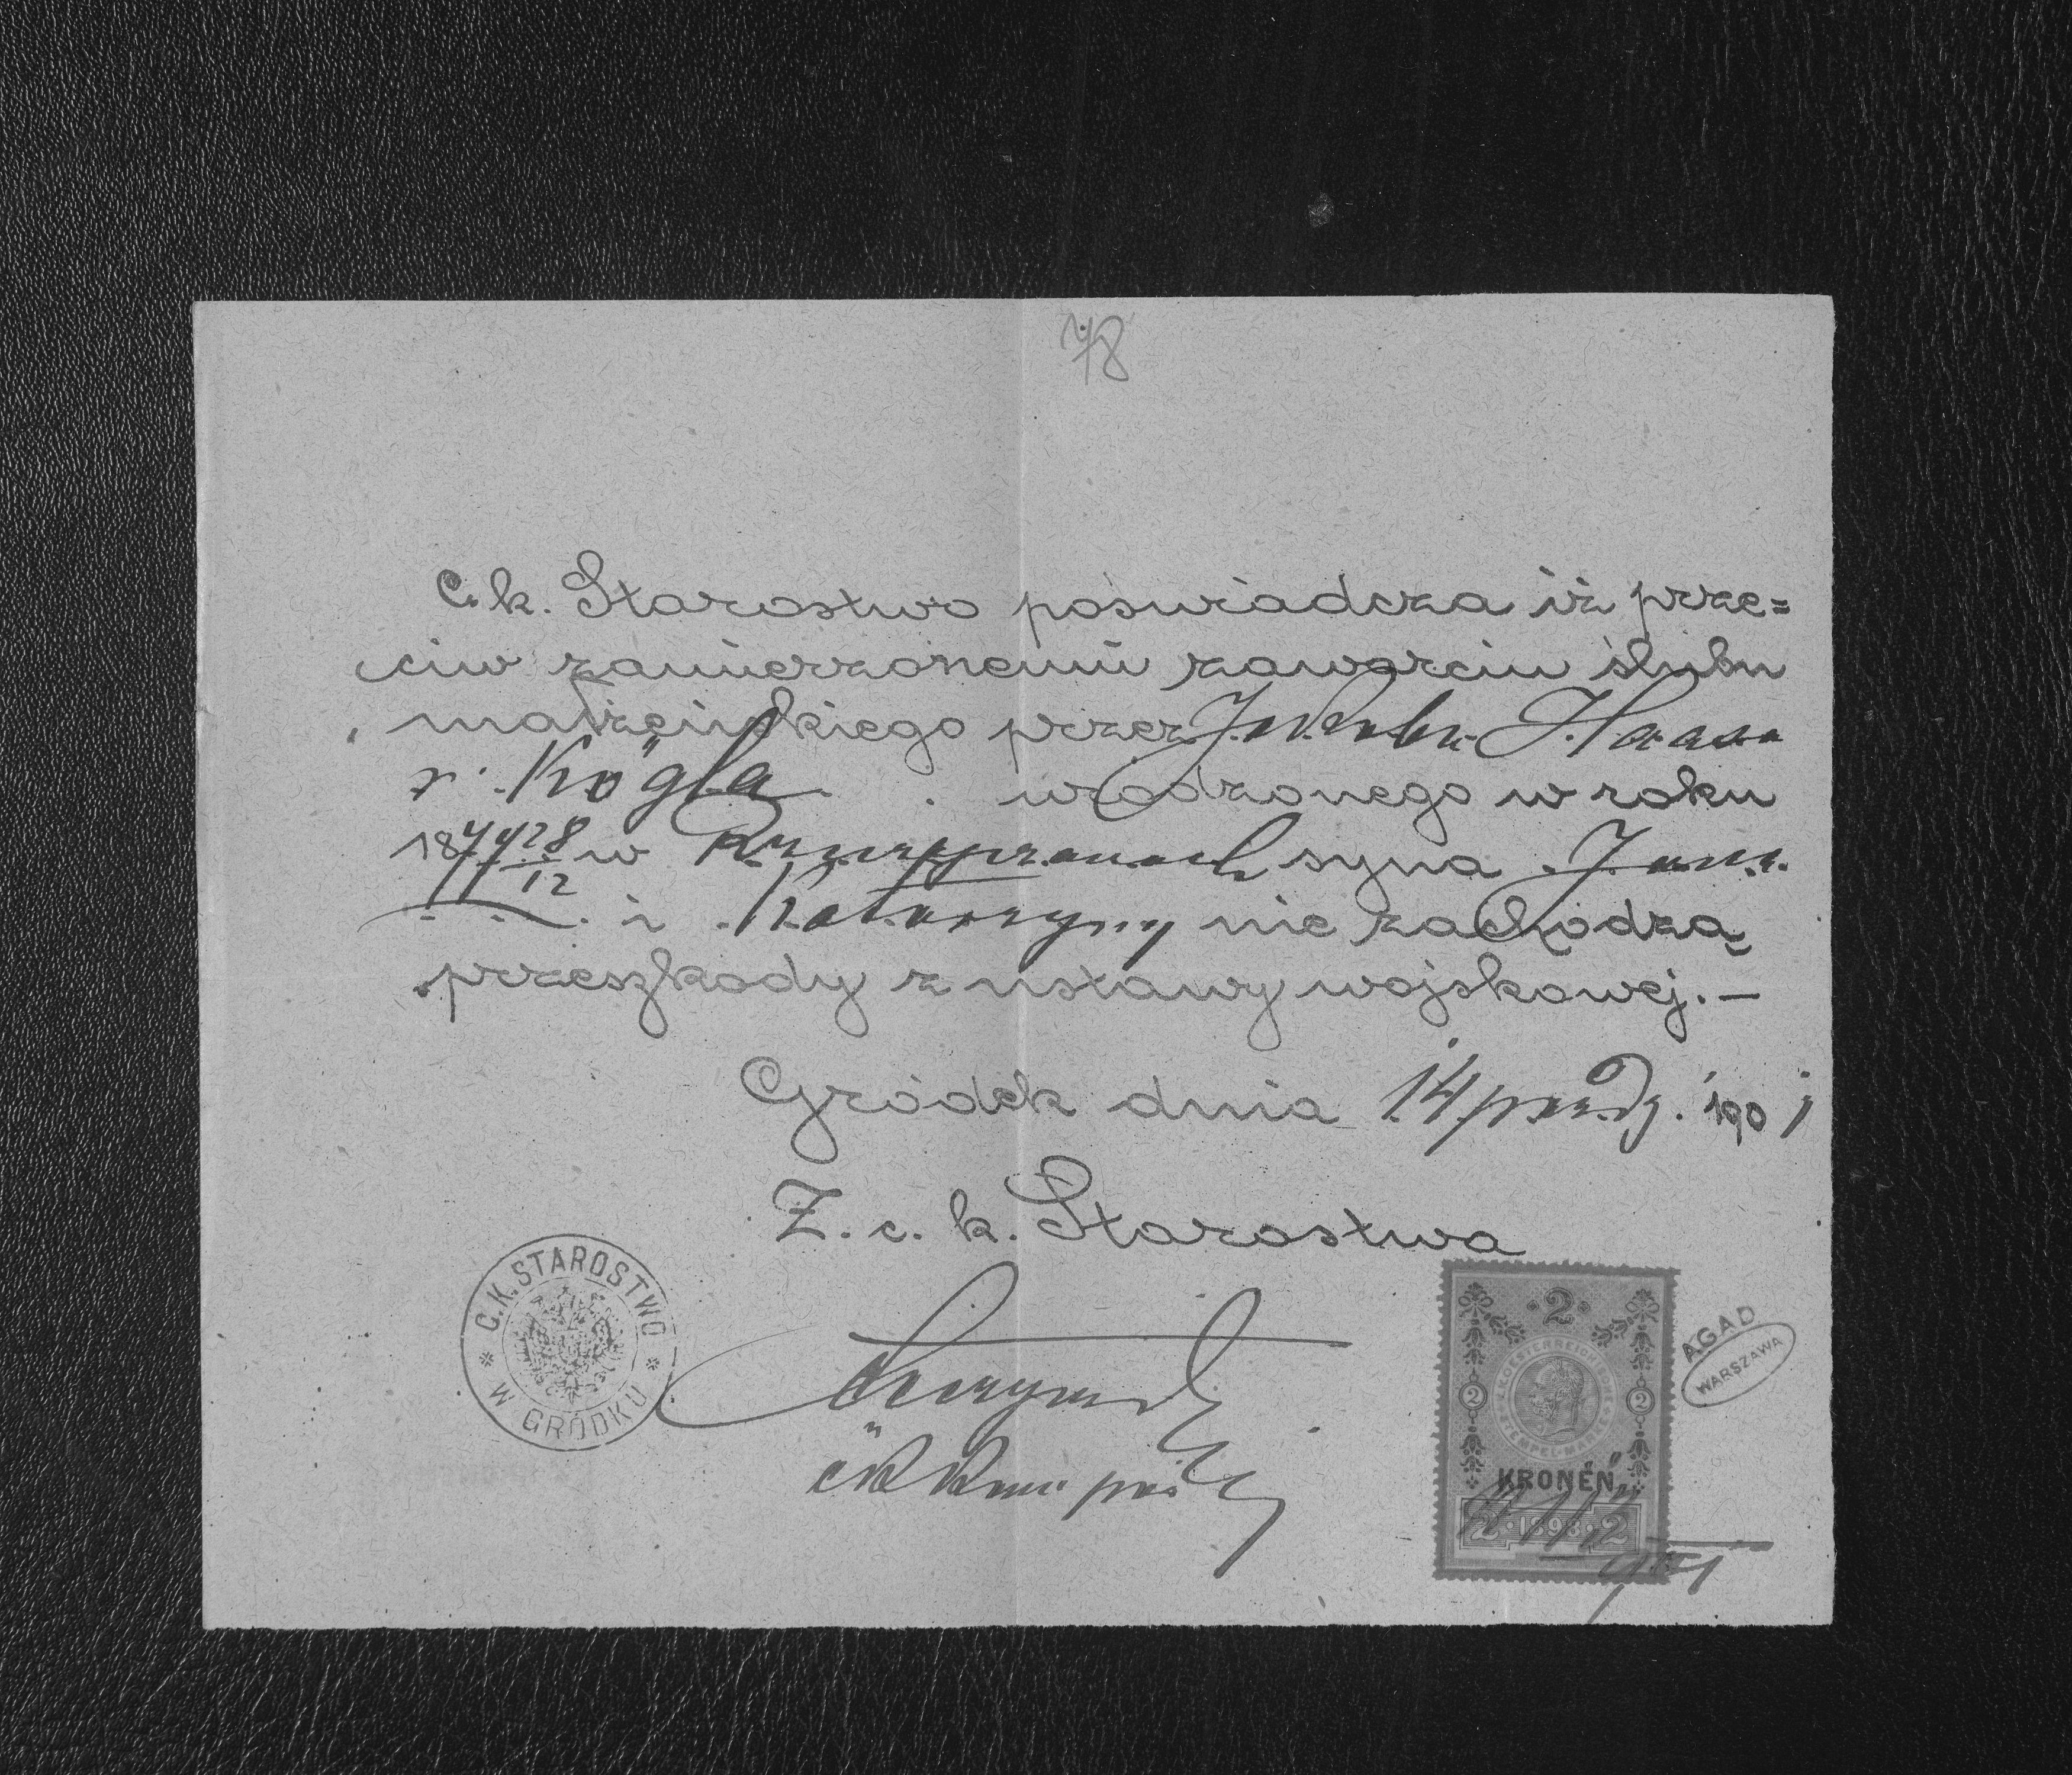 78
C. k. Starostwo poświadcza iż prze=
ciw zamierzonemu zawarciu ślubu
małżeńskiego przez Jakuba Haasa
v. Kögla urodzonego w roku
1877 28/12 w syna Jana
i Katarzyny nie zachodzą
przeszkody z ustawy wojskowej.—
Gródek dnia 14 paźdz. 1901
Z. c. k. Starostwa
C.K. STAROSTWO
* W GRÓDKU *
2
K.K. OESTERREICHISCHE
STEMPEL-MARKE
2 2
KRONEN
2 · 1898 · 2
AGAD
WARSZAWA